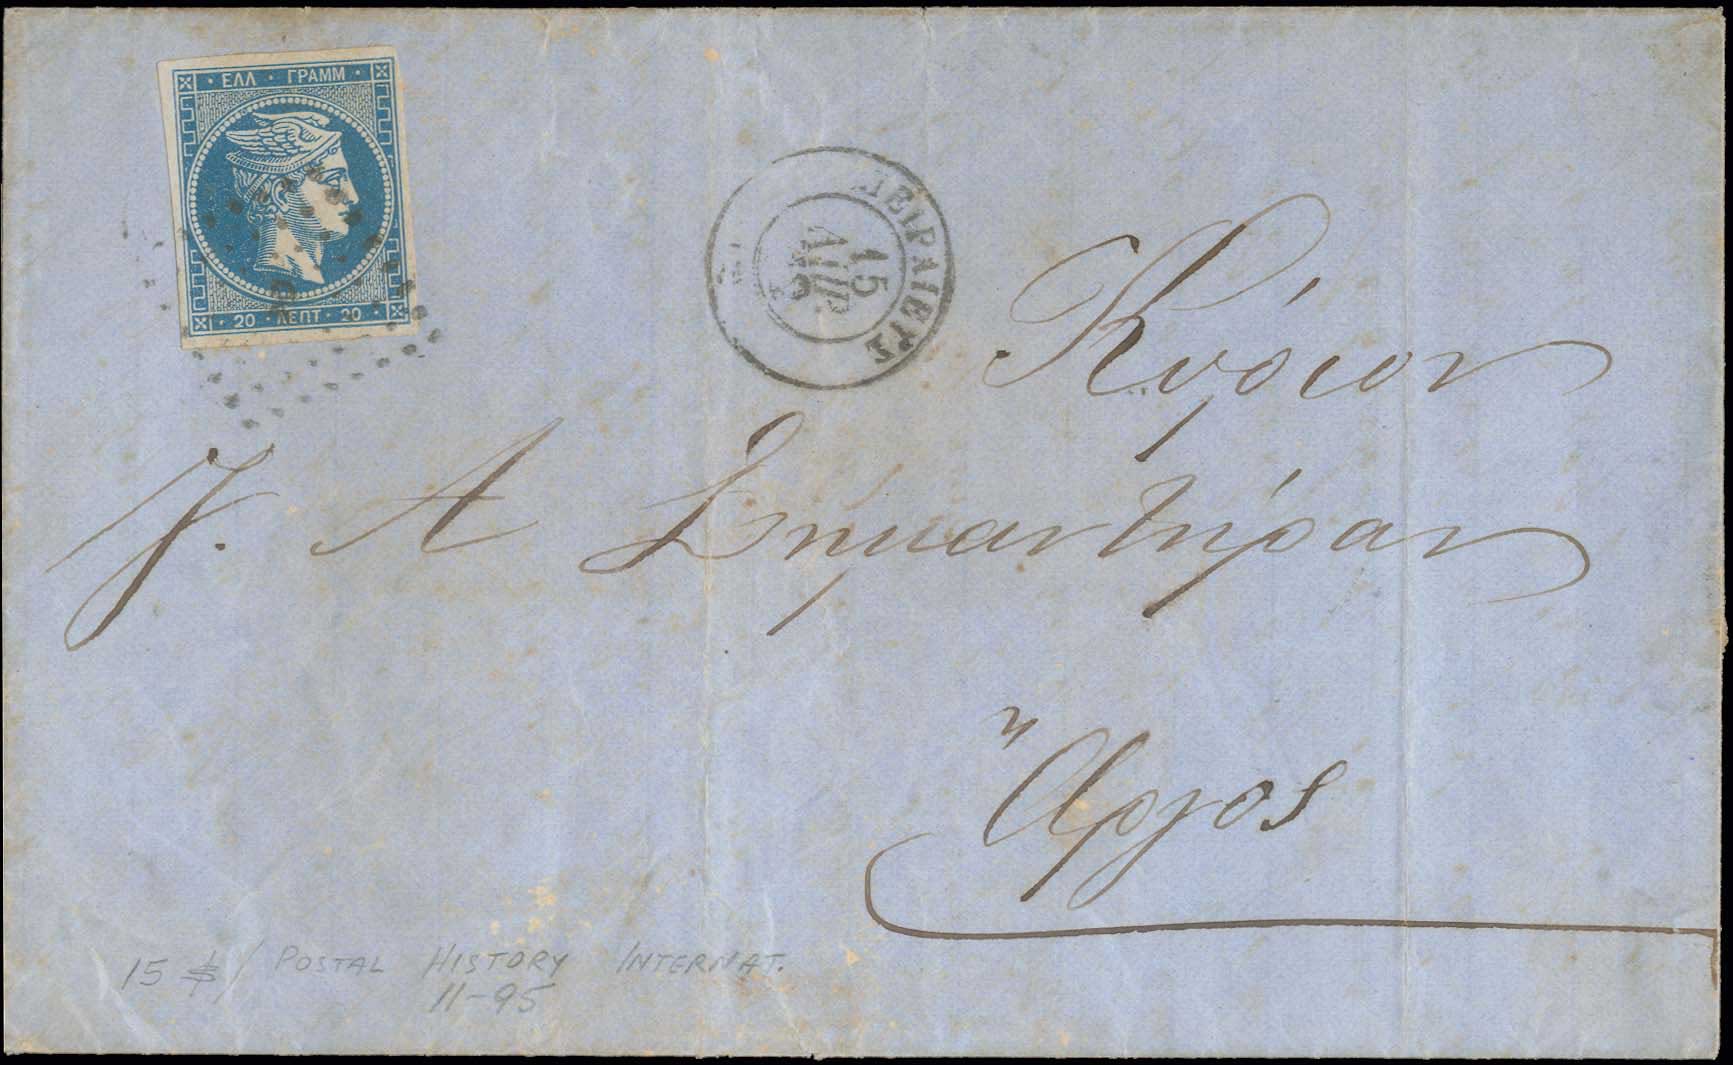 ΕΛΛ · ΓΡΑΜΜ
20 · ΛΕΠΤ · 20
ΠΕΙΡΑΙΕΥΣ
15
ΑΠΡ.
Κύριον
Γ. Α Σημαντήραν
Ἄργος
15 $ / POSTAL HISTORY INTERNAT.
11-95